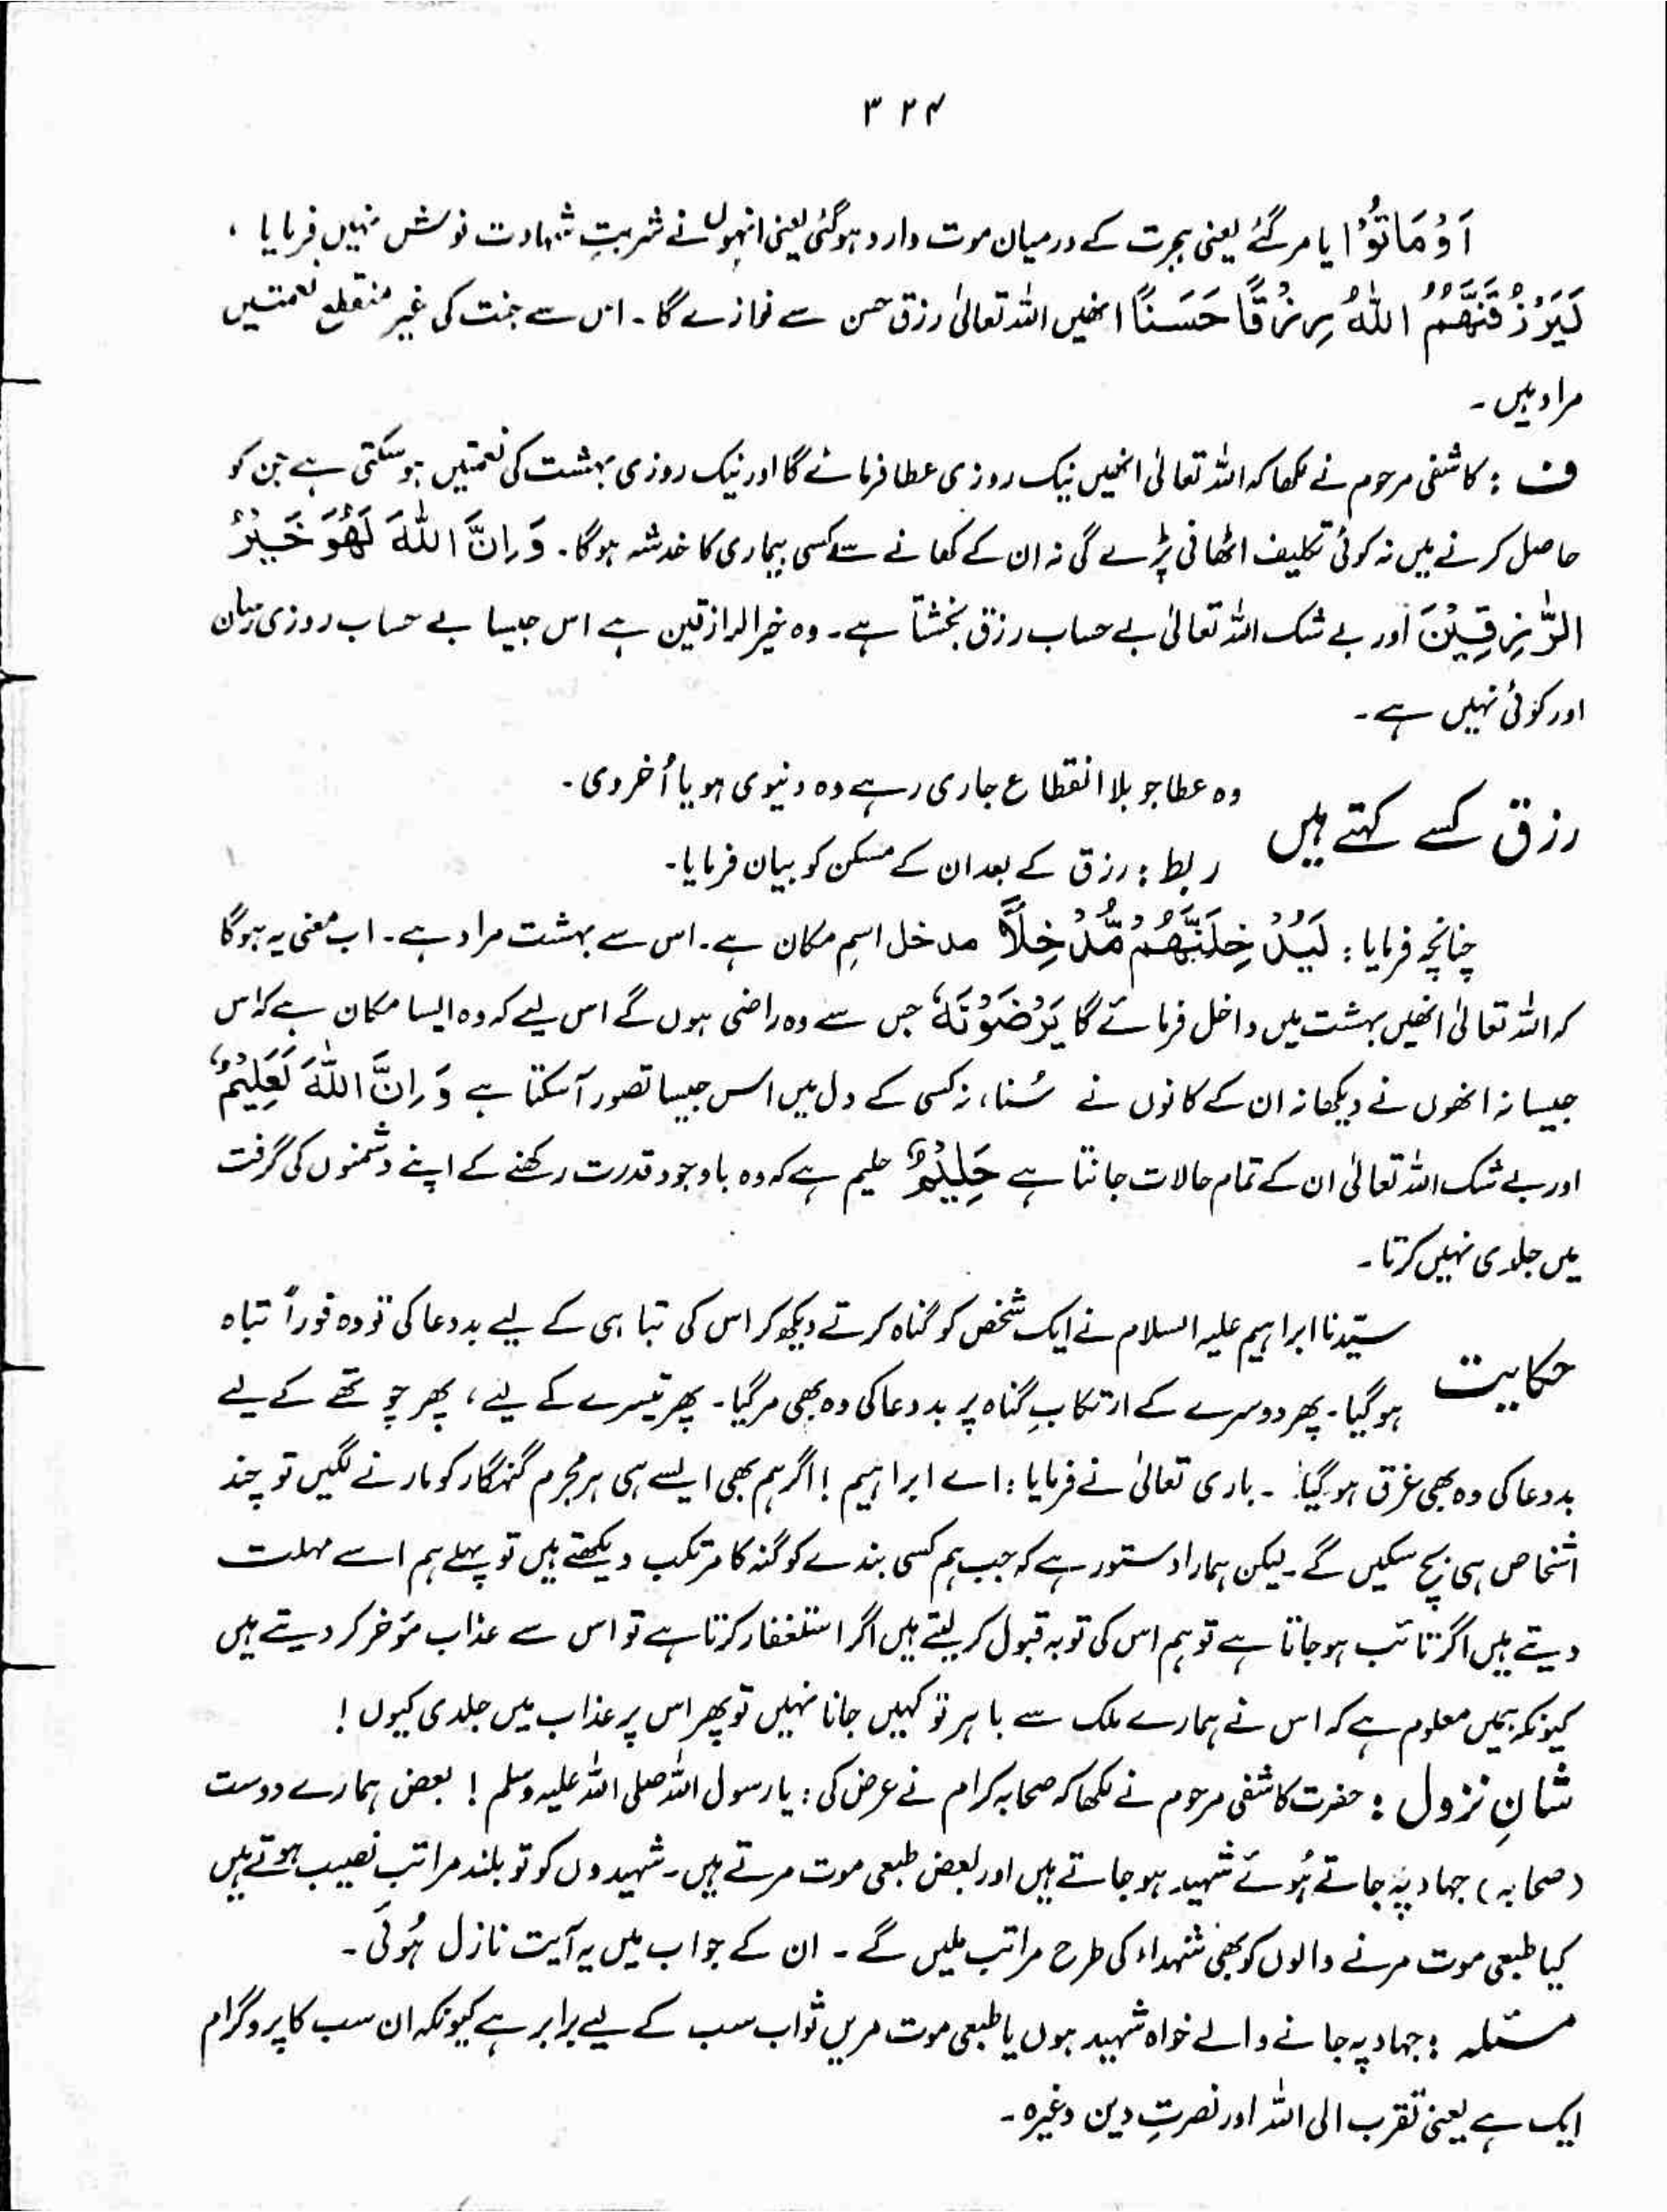 ۳۲۴
اَوْ مَاتُوْا یا مر گئے یعنی ہجرت کے درمیان موت وارد ہوگئی یعنی انہوں نے شربتِ شہادت نوش نہیں فرمایا ،
لَيَرْزُقَنَّهُمُ اللّٰهُ رِزْقًا حَسَنًا انھیں اللہ تعالیٰ رزق حسن سے نوازے گا ۔ اس سے جنت کی غیر منقطع نعمتیں
مراد ہیں ۔
ف : کاشفی مرحوم نے لکھا کہ اللہ تعالیٰ انھیں نیک روزی عطا فرمائے گا اور نیک روزی بہشت کی نعمتیں ہو سکتی ہے جن کو
حاصل کرنے میں نہ کوئی تکلیف اٹھانی پڑے گی نہ ان کے کھانے سے کسی بیماری کا خدشہ ہوگا ۔ وَ اِنَّ اللّٰهَ لَهُوَ خَيْرُ
الرّٰزِقِيْنَ اور بے شک اللہ تعالیٰ بے حساب رزق بخشتا ہے ۔ وہ خیر الرازقین ہے اس جیسا بے حساب روزی رساں
اور کوئی نہیں ہے ۔
رزق کسے کہتے ہیں وہ عطا جو بلا انقطاع جاری رہے وہ دنیوی ہو یا اُخروی ۔
ربط : رزق کے بعد ان کے مسکن کو بیان فرمایا ۔
چنانچہ فرمایا : لَيُدْخِلَنَّهُمْ مُّدْخَلًا مدخل اسمِ مکان ہے ۔ اس سے بہشت مراد ہے ۔ اب معنی یہ ہوگا
کہ اللہ تعالیٰ انھیں بہشت میں داخل فرمائے گا يَرْضَوْنَهٗ جس سے وہ راضی ہوں گے اس لیے کہ وہ ایسا مکان ہے کہ اس
جیسا نہ انھوں نے دیکھا نہ ان کے کانوں نے سُنا ، نہ کسی کے دل میں اس جیسا تصور آسکتا ہے وَ اِنَّ اللّٰهَ لَعَلِيْمٌ
اور بے شک اللہ تعالیٰ ان کے تمام حالات جانتا ہے حَلِيْمٌ حلیم ہے کہ وہ باوجود قدرت رکھنے کے اپنے دشمنوں کی گرفت
میں جلدی نہیں کرتا ۔
حکایت سیّدنا ابراہیم علیہ السلام نے ایک شخص کو گناہ کرتے دیکھ کر اس کی تباہی کے لیے بددعا کی تو وہ فوراً تباہ
ہوگیا ۔ پھر دوسرے کے ارتکابِ گناہ پر بددعا کی وہ بھی مرگیا ۔ پھر تیسرے کے لیے ، پھر چوتھے کے لیے
بددعا کی وہ بھی غرق ہوگیا ۔ باری تعالیٰ نے فرمایا : اے ابراہیم ! اگر ہم بھی ایسے ہی ہر مجرم گنہگار کو مارنے لگیں تو چند
اشخاص ہی بچ سکیں گے ۔ لیکن ہمارا دستور ہے کہ جب ہم کسی بندے کو گنہ کا مرتکب دیکھتے ہیں تو پہلے ہم اسے مہلت
دیتے ہیں اگر تائب ہوجاتا ہے تو ہم اس کی توبہ قبول کرلیتے ہیں اگر استغفار کرتا ہے تو اس سے عذاب مؤخر کر دیتے ہیں
کیونکہ ہمیں معلوم ہے کہ اس نے ہمارے ملک سے باہر تو کہیں جانا نہیں تو پھر اس پر عذاب میں جلدی کیوں !
شانِ نزول : حضرت کاشفی مرحوم نے لکھا کہ صحابہ کرام نے عرض کی : یا رسول اللہ صلی اللہ علیہ وسلم ! بعض ہمارے دوست
( صحابہ ) جہاد پہ جاتے ہُوئے شہید ہوجاتے ہیں اور بعض طبعی موت مرتے ہیں ۔ شہیدوں کو تو بلند مراتب نصیب ہوتے ہیں
کیا طبعی موت مرنے والوں کو بھی شہداء کی طرح مراتب ملیں گے ۔ ان کے جواب میں یہ آیت نازل ہُوئی ۔
مسئلہ : جہاد پہ جانے والے خواہ شہید ہوں یا طبعی موت مریں ثواب سب کے لیے برابر ہے کیونکہ ان سب کا پروگرام
ایک ہے یعنی تقرب الی اللہ اور نصرتِ دین وغیرہ ۔